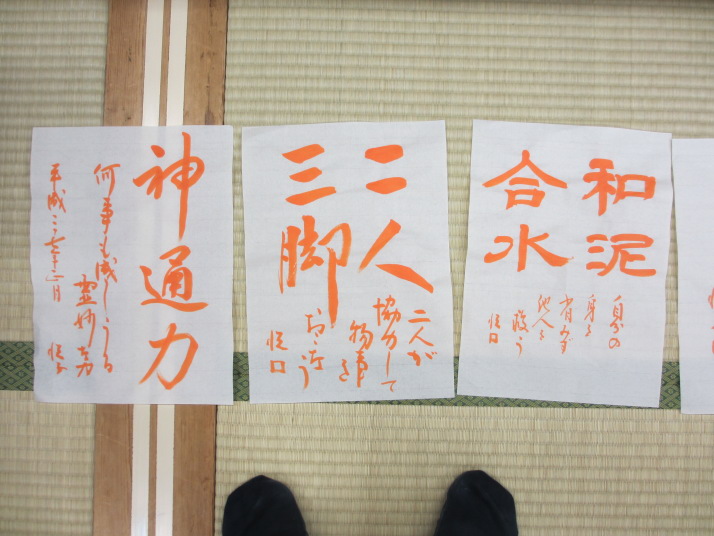 和泥
合水
自分の
身を
省みず
他人を
救う
二人
三脚
二人が
協力して
物事を
おこなう
神通力
何事も成しうる
霊妙な力
平成